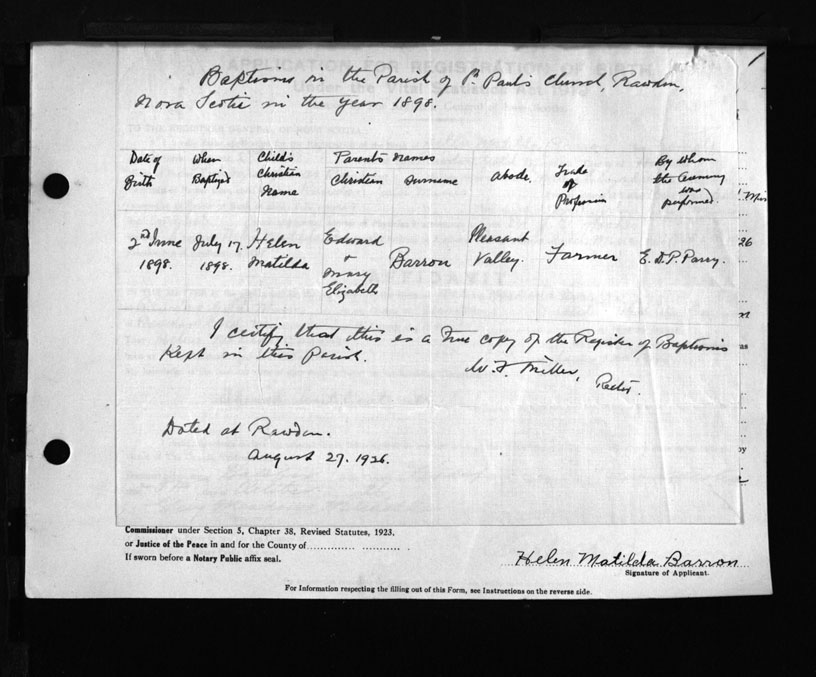 Baptisms in the Parish of St. Paul's Church, Rawdon,
Nova Scotia in the year 1898.
Date of Birth
When Baptized
Child's Christian Name
Parents names
Christian
Surname
Abode.
Trade or Profession
By whom the Ceremony was performed.
2nd June 1898.
July 17. 1898.
Helen Matilda
Edward & Mary Elizabeth
Barron
Pleasant Valley.
Farmer
E. D. P. Parry.
I certify that this is a true copy of the Register of Baptisms
Kept in this Parish.
W. F. Miller,
Rector.
Dated at Rawdon.
August 27. 1926.
Commissioner under Section 5, Chapter 38, Revised Statutes, 1923,
or Justice of the Peace in and for the County of
If sworn before a Notary Public affix seal.
Helen Matilda Barron
Signature of Applicant.
For Information respecting the filling out of this Form, see Instructions on the reverse side.